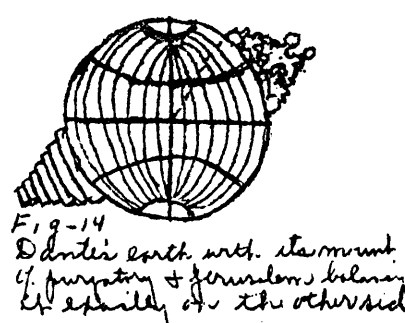 Fig-14
Dante's earth with its mount
of purgatory & Jerusalem balancing
it exactly on the other side